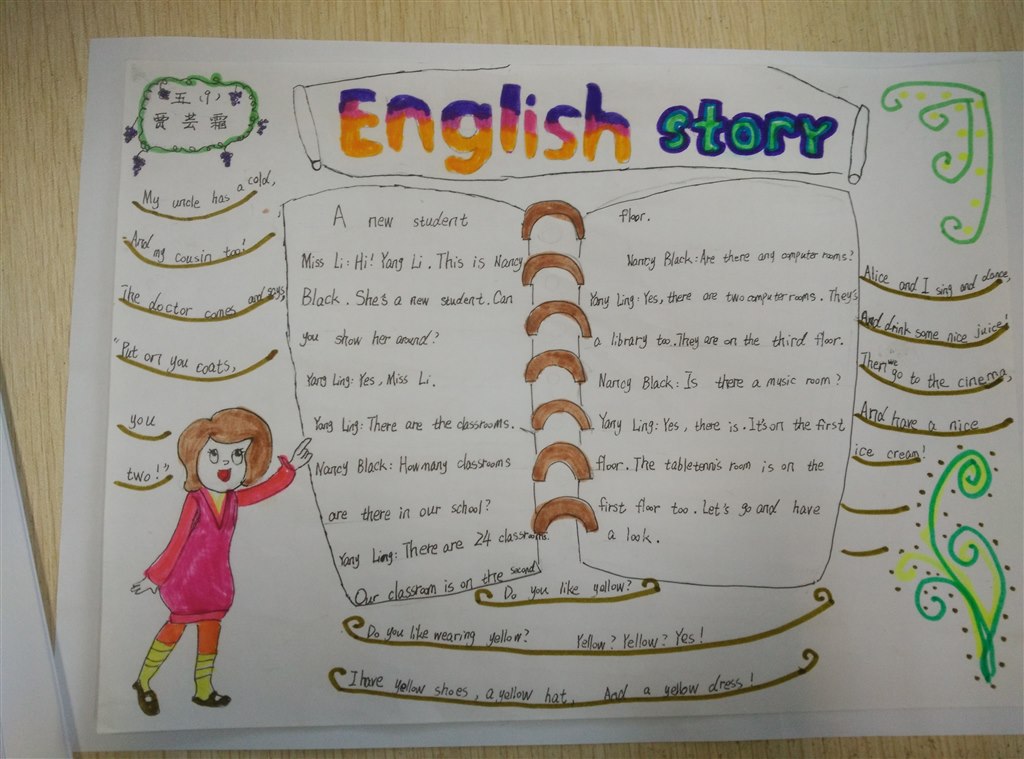 五（9）
贾芸霜
English story
My uncle has a cold,
And my cousin too!
The doctor comes and says,
"Put on you coats,
you
two!"
A new student
Miss Li: Hi! Yang Li. This is Nancy
Black. She's a new student. Can
you show her around?
Yang Ling: Yes, Miss Li.
Yang Ling: There are the classrooms.
Nancy Black: How many classrooms
are there in our school?
Yang Ling: There are 24 classrooms.
Our classroom is on the second
floor.
Nancy Black: Are there any computer rooms?
Yang Ling: Yes, there are two computer rooms. They's
a library too. They are on the third floor.
Nancy Black: Is there a music room?
Yang Ling: Yes, there is. It's on the first
floor. The table tennis room is on the
first floor too. Let's go and have
a look.
Alice and I sing and dance,
And drink some nice juice!
Then we go to the cinema,
And have a nice
ice cream!
Do you like yellow?
Do you like wearing yellow? Yellow? Yellow? Yes!
I have yellow shoes, a yellow hat, And a yellow dress!